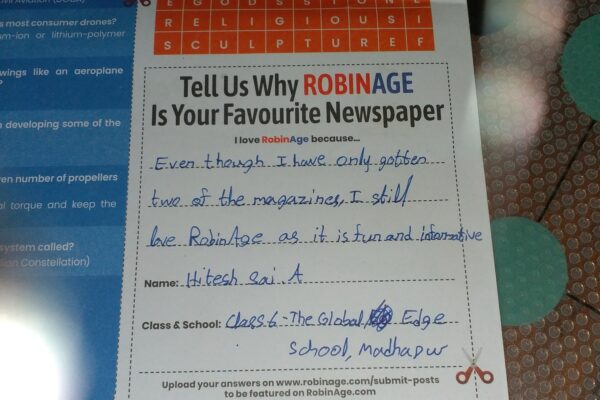 s most consumer drones?
um-ion or lithium-polymer
wings like an aeroplane
n developing some of the
en number of propellers
al torque and keep the
system called?
ian Constellation)
R E L I G I O U S I
S C U L P T U R E F
Tell Us Why ROBINAGE
Is Your Favourite Newspaper
I love RobinAge because...
Even though I have only gotten
two of the magazines, I still
love RobinAge as it is fun and informative
Name: Hitesh Sai. A
Class & School: Class 6 - The Global Edge
School, Madhapur
Upload your answers on www.robinage.com/submit-posts
to be featured on RobinAge.com